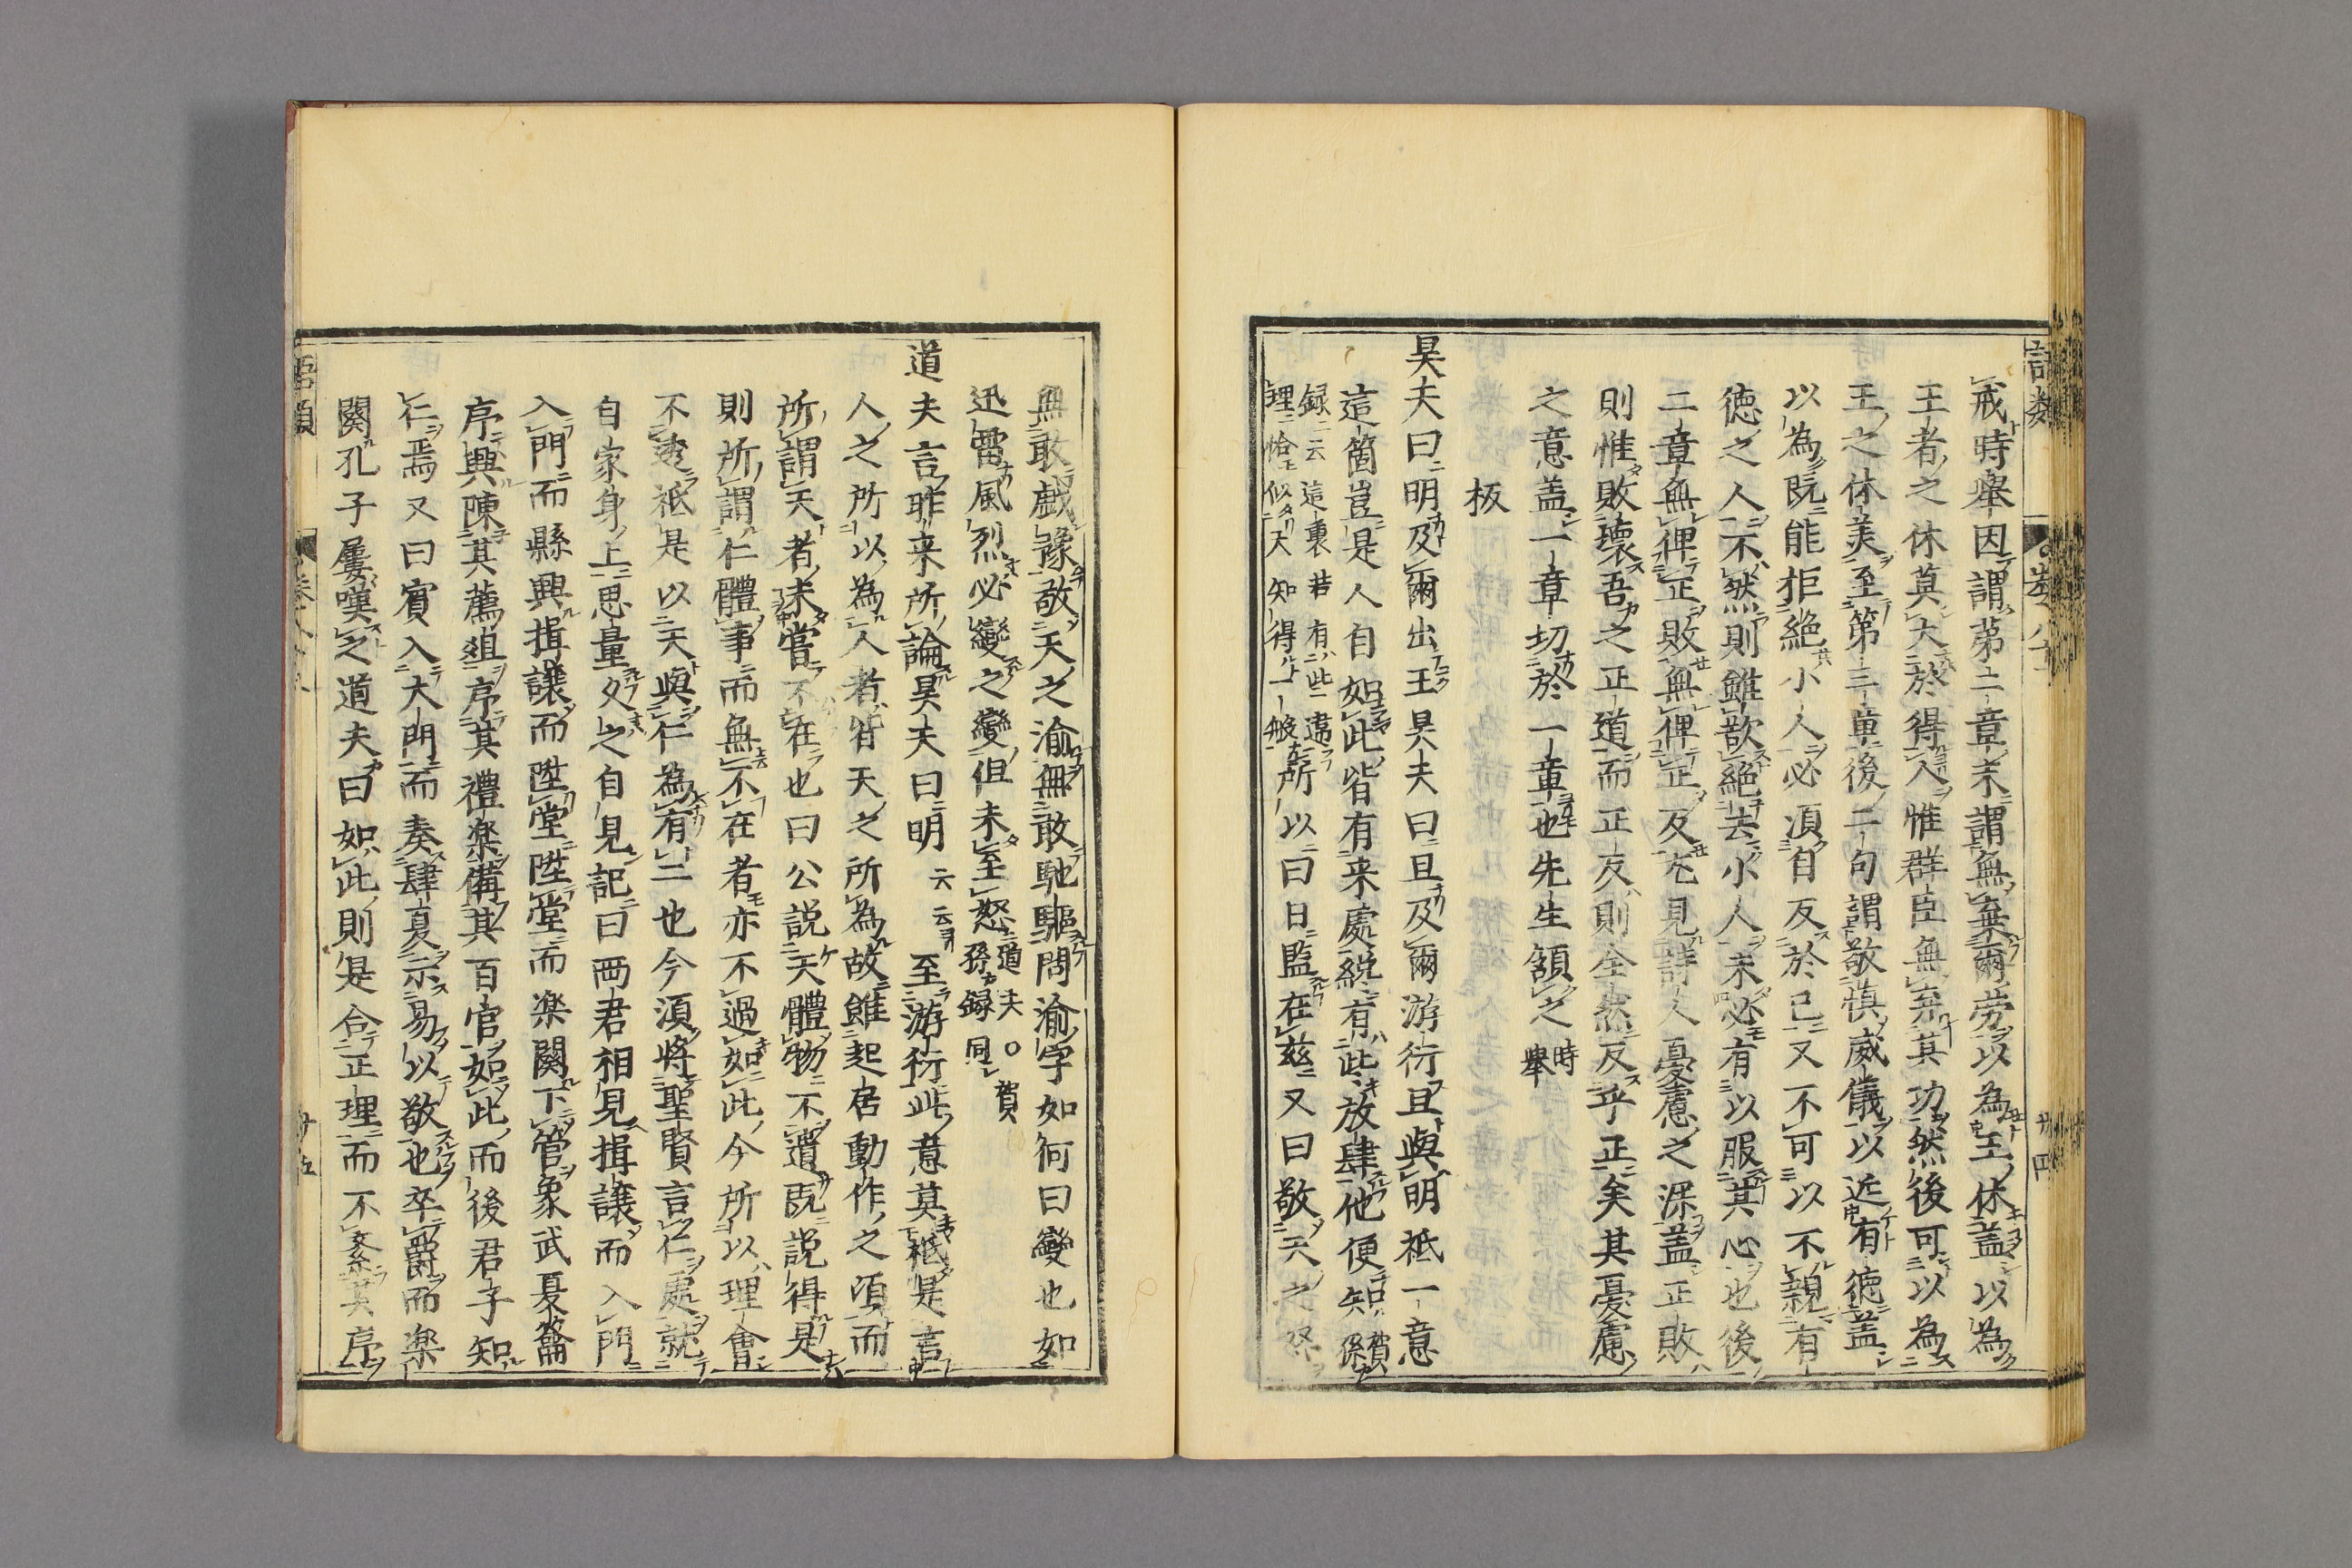 語類 卷八十一 廿四
戒時舉因謂第二章末謂無棄爾勞以為王休盖以為
王者之休莫大於得人惟群臣無弃其功然後可以為
王之休美至第三章後二句謂敬慎威儀以近有徳盖
以為既能拒絶小人必湏自反於己又不可以不親有
徳之人不然則雖欲絶去小人未必有以服其心也後
二章無俾正敗無俾正反尤見詩人憂慮之深盖正敗
則惟敗壞吾之正道而正反則全然反乎正矣其憂慮
之意盖一章切於一章也先生頷之時舉
板
昊夫曰明及爾出王昊夫曰旦及爾游衍旦與明祗一意
這箇豈是人自如此皆有来處纔有此放肆他便知賀孫
録云這裏若有些違理恰似天知得一般所以曰日監在兹又曰敬天之
無敢戲豫敬天之渝無敢馳驅問渝字如何曰變也如
迅雷風烈必變之變但未至怒道夫○賀孫録同
道夫言昨来所論昊夫曰明云云至游衍此意莫祗是言
人之所以為人者皆天之所為故雖起居動作之湏而
所謂天者未嘗不在也曰公説天體物不遺既説得是
則所謂仁體事而無不在者亦不過如此今所以理會
不透祗是以天與仁為有二也今湏將聖賢言仁處就
自家身上思量久之自見記曰兩君相見揖讓而入門
入門而縣興揖讓而陞堂陞堂而楽闋下管象武夏籥
序興陳其薦俎序其禮楽備其百官如此而後君子知
仁焉又曰賓入大門而奏肆夏示易以敬也卒爵而楽
闋孔子屢嘆之道夫曰如此則是合正理而不紊其序
語類 卷八十一 廿五